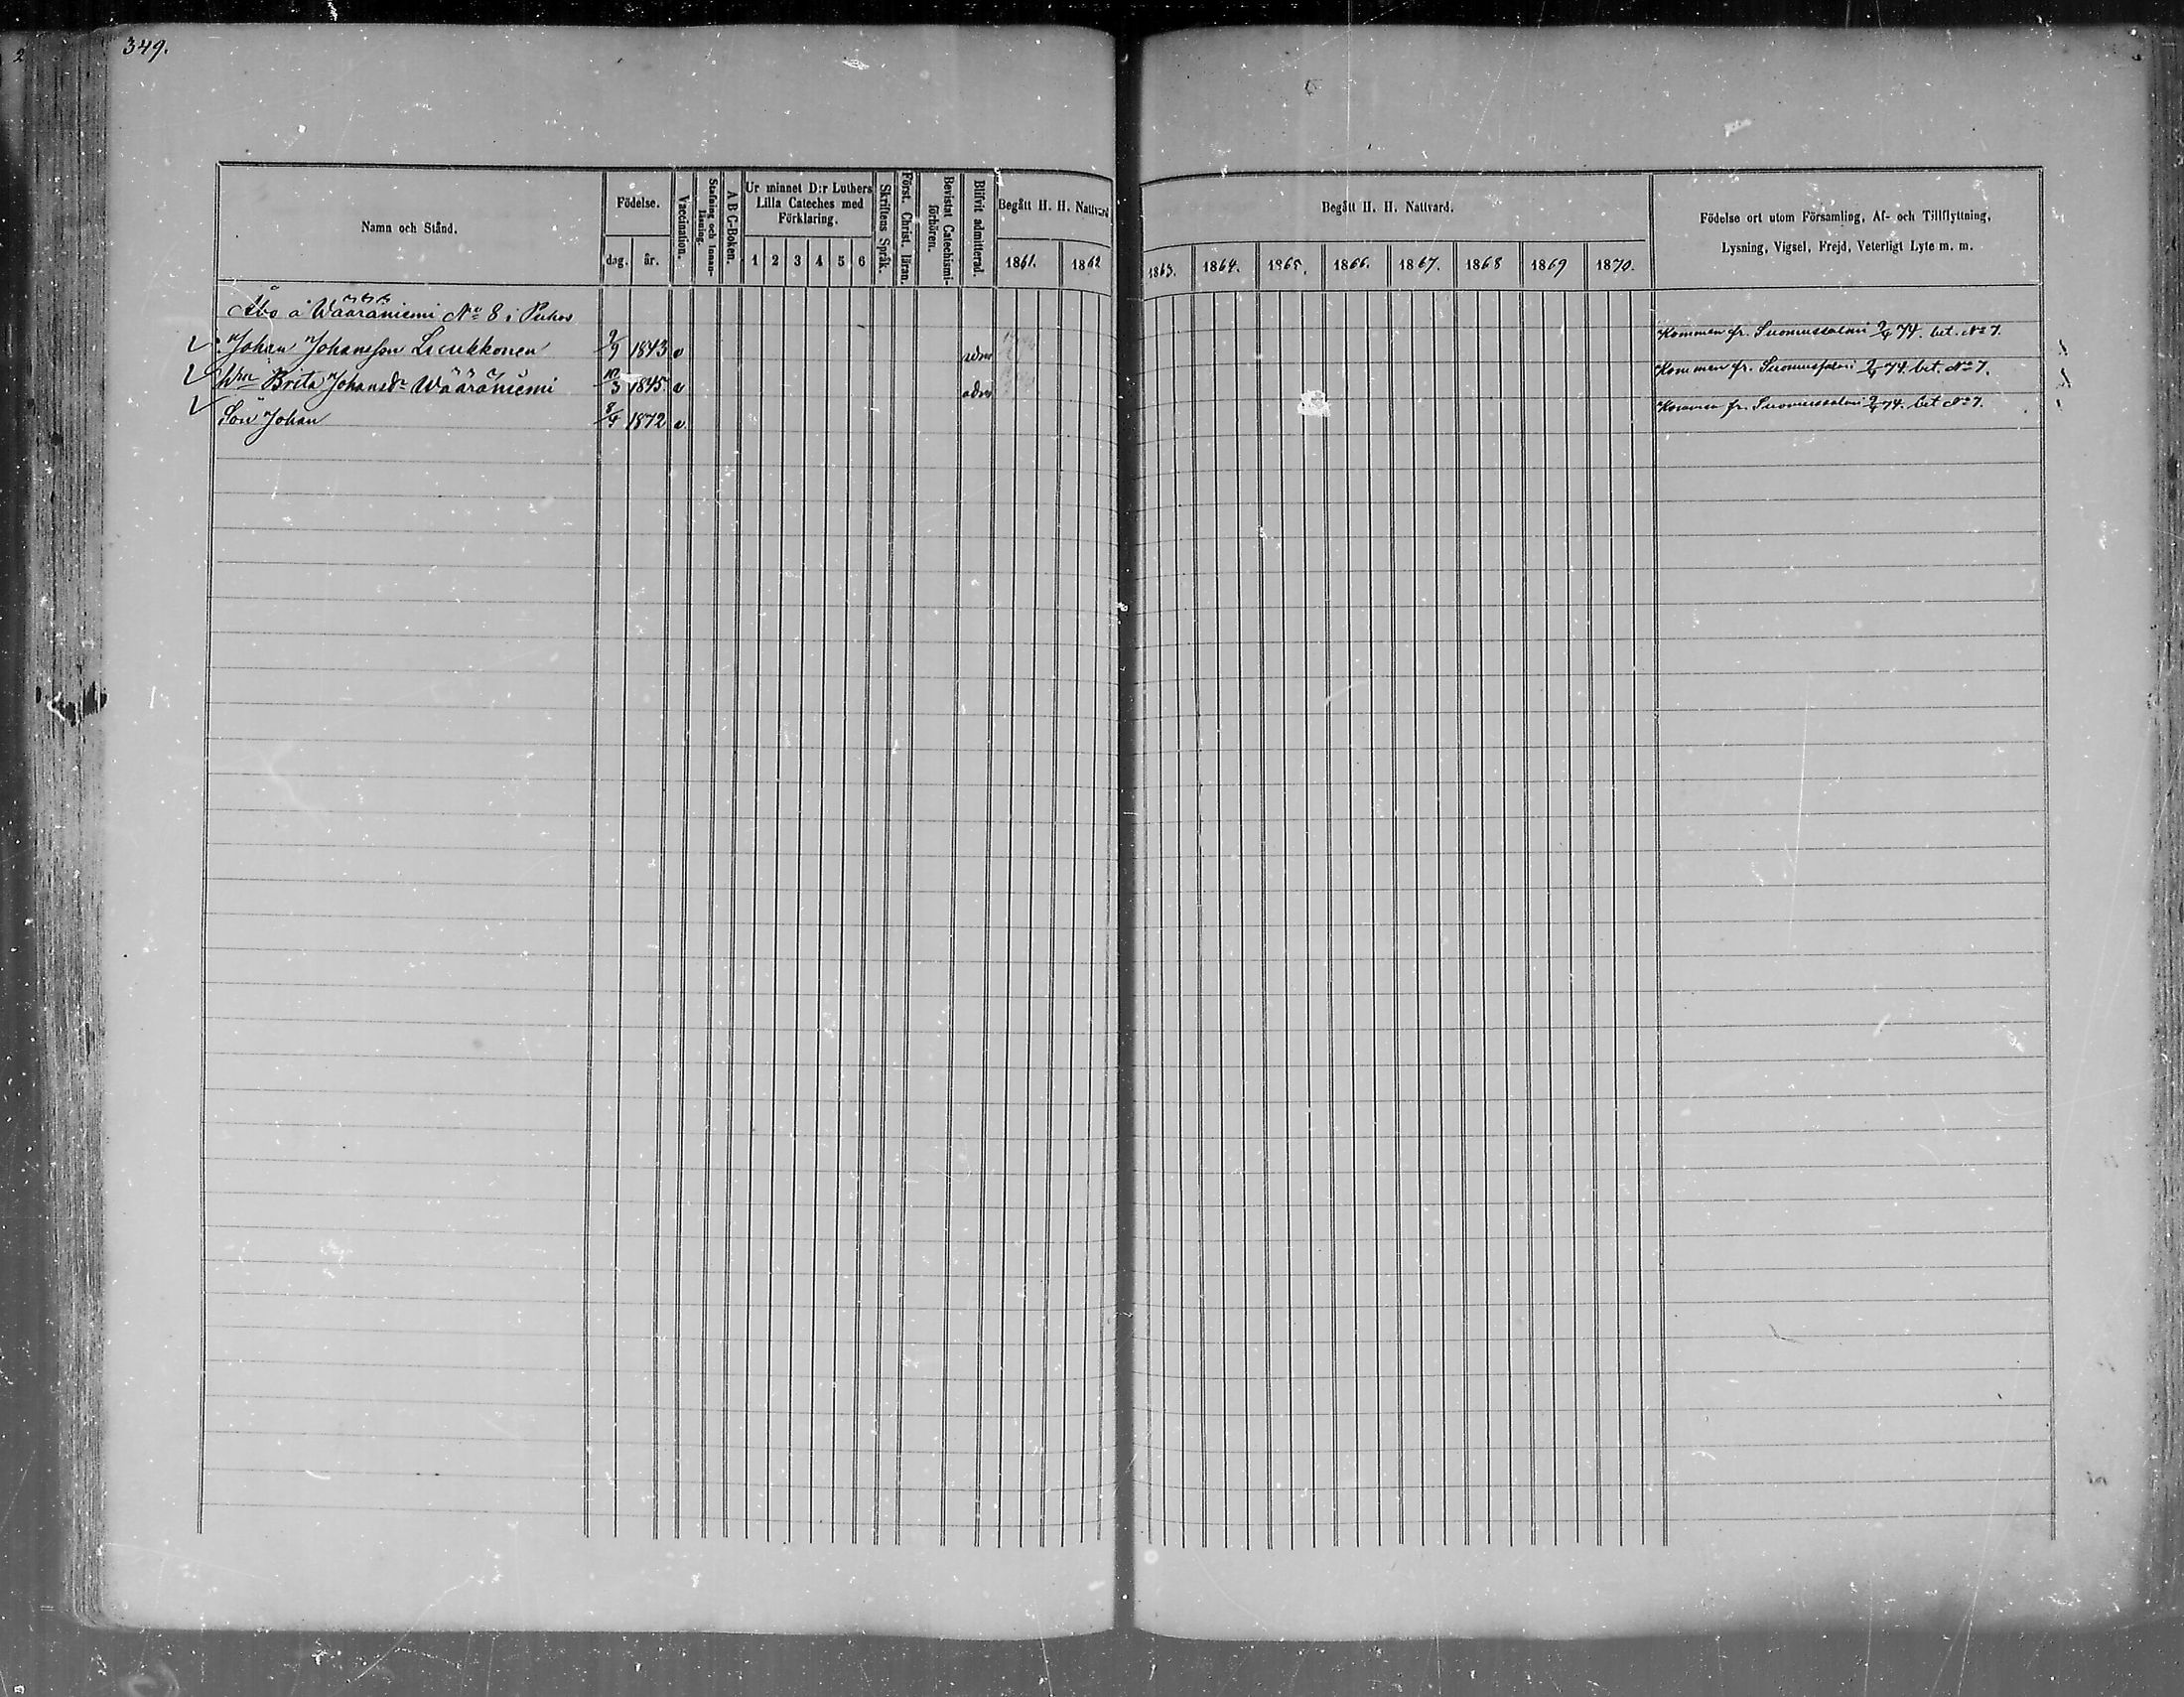 349.
Namn och Stånd.
Födelse.
dag. år.
Vaccination.
Stafning och Innanläsning.
A B C-Boken.
Ur minnet D:r Luthers
Lilla Cateches med
Förklaring.
1 2 3 4 5 6
Skriftens Språk.
Först. Christ. läran.
Bevistat Catechismi-
förhören.
Blifvit admitterad.
Begått H. H. Nattvard
1861. 1862
Begått H. H. Nattvard.
1863. 1864. 1865. 1866. 1867. 1868 1869 1870.
Födelse ort utom Församling, Af- och Tillflyttning,
Lysning, Vigsel, Frejd, Veterligt Lyte m. m.
Åbo å Wääräniemi No 8 i Puhos
Johan Johansson Leukkonen 9/9 1843 v adm Kommen fr. Suomussalmi 2/4 74. bet. No 7.
Hru Brita Johansdr Wääräniemi 10/3 1845 v adm Kommen fr. Suomussalmi 2/4 74. bet. No 7.
Son Johan 8/4 1872 v. Kommen fr. Suomussalmi 2/4 74. bet No 7.